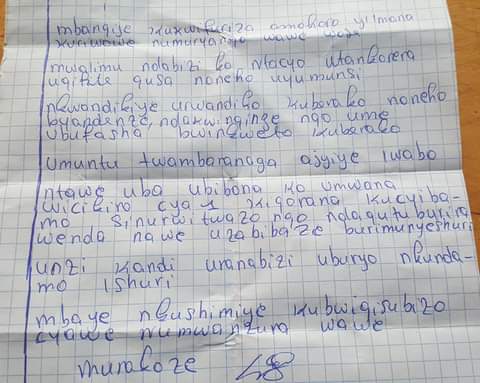 mbangiye kukwifuriza amahoro y'Imana
kuriwowe numuryango wawe wose
mwalimu ndabizi ko ntacyo utankorera
ugitite gusa noneho uyumunsi
nkwandikiye urwandiko kuberako noneho
byandenze, ndakwinginge ngo ume
ubufasha bwinkweto kuberako
umuntu twambaranaga agiye iwabo
ntawe uba ubibona ko umwana
wicikiro cya 1 kigorana kucyiba-
mo sinurwitwazo ngo ndagutuburira
wenda nawe uzabibaze burimunyeshuri
unzi kandi uranabizi uburyo nkunda-
mo ishuri
mbaye nkushimiye kubwigisubizo
cyawe numwanzura wawe
murakoze